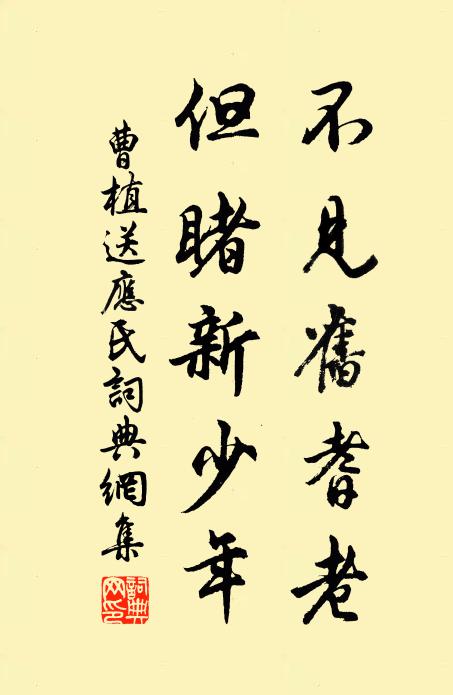 不見舊耆老
但睹新少年
曹植送應氏詞典網集
詞典網印